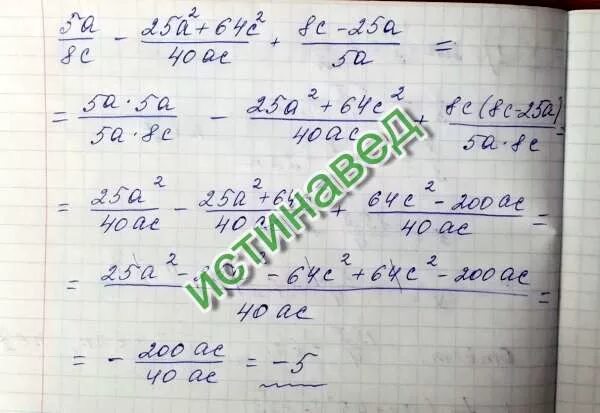 5a/8c - (25a² + 64c²)/40ac + (8c - 25a)/5a =
= (5a · 5a)/(5a · 8c) - (25a² + 64c²)/40ac + 8c(8c - 25a)/(5a · 8c) =
= 25a²/40ac - (25a² + 64)/40ac + (64c² - 200ac)/40ac =
= (25a² - ² - 64c² + 64c² - 200ac)/40ac =
= - 200ac/40ac = -5
ИСТИНАВЕД